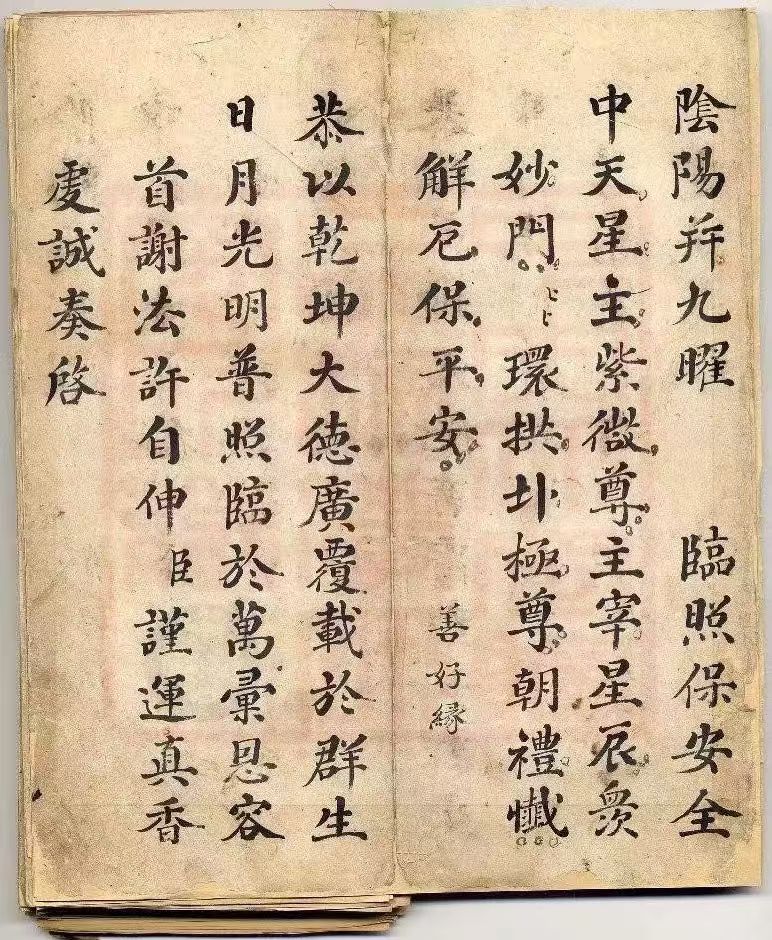 陰陽并九曜 臨照保安全
中天星主紫微尊主宰星辰眾
妙門 上上 環拱北極尊朝禮懺
解厄保平安
善好緣
恭以乾坤大德廣覆載於群生
日月光明普照臨於萬彙恩容
首謝法許自伸臣謹運真香
虔誠奏啓